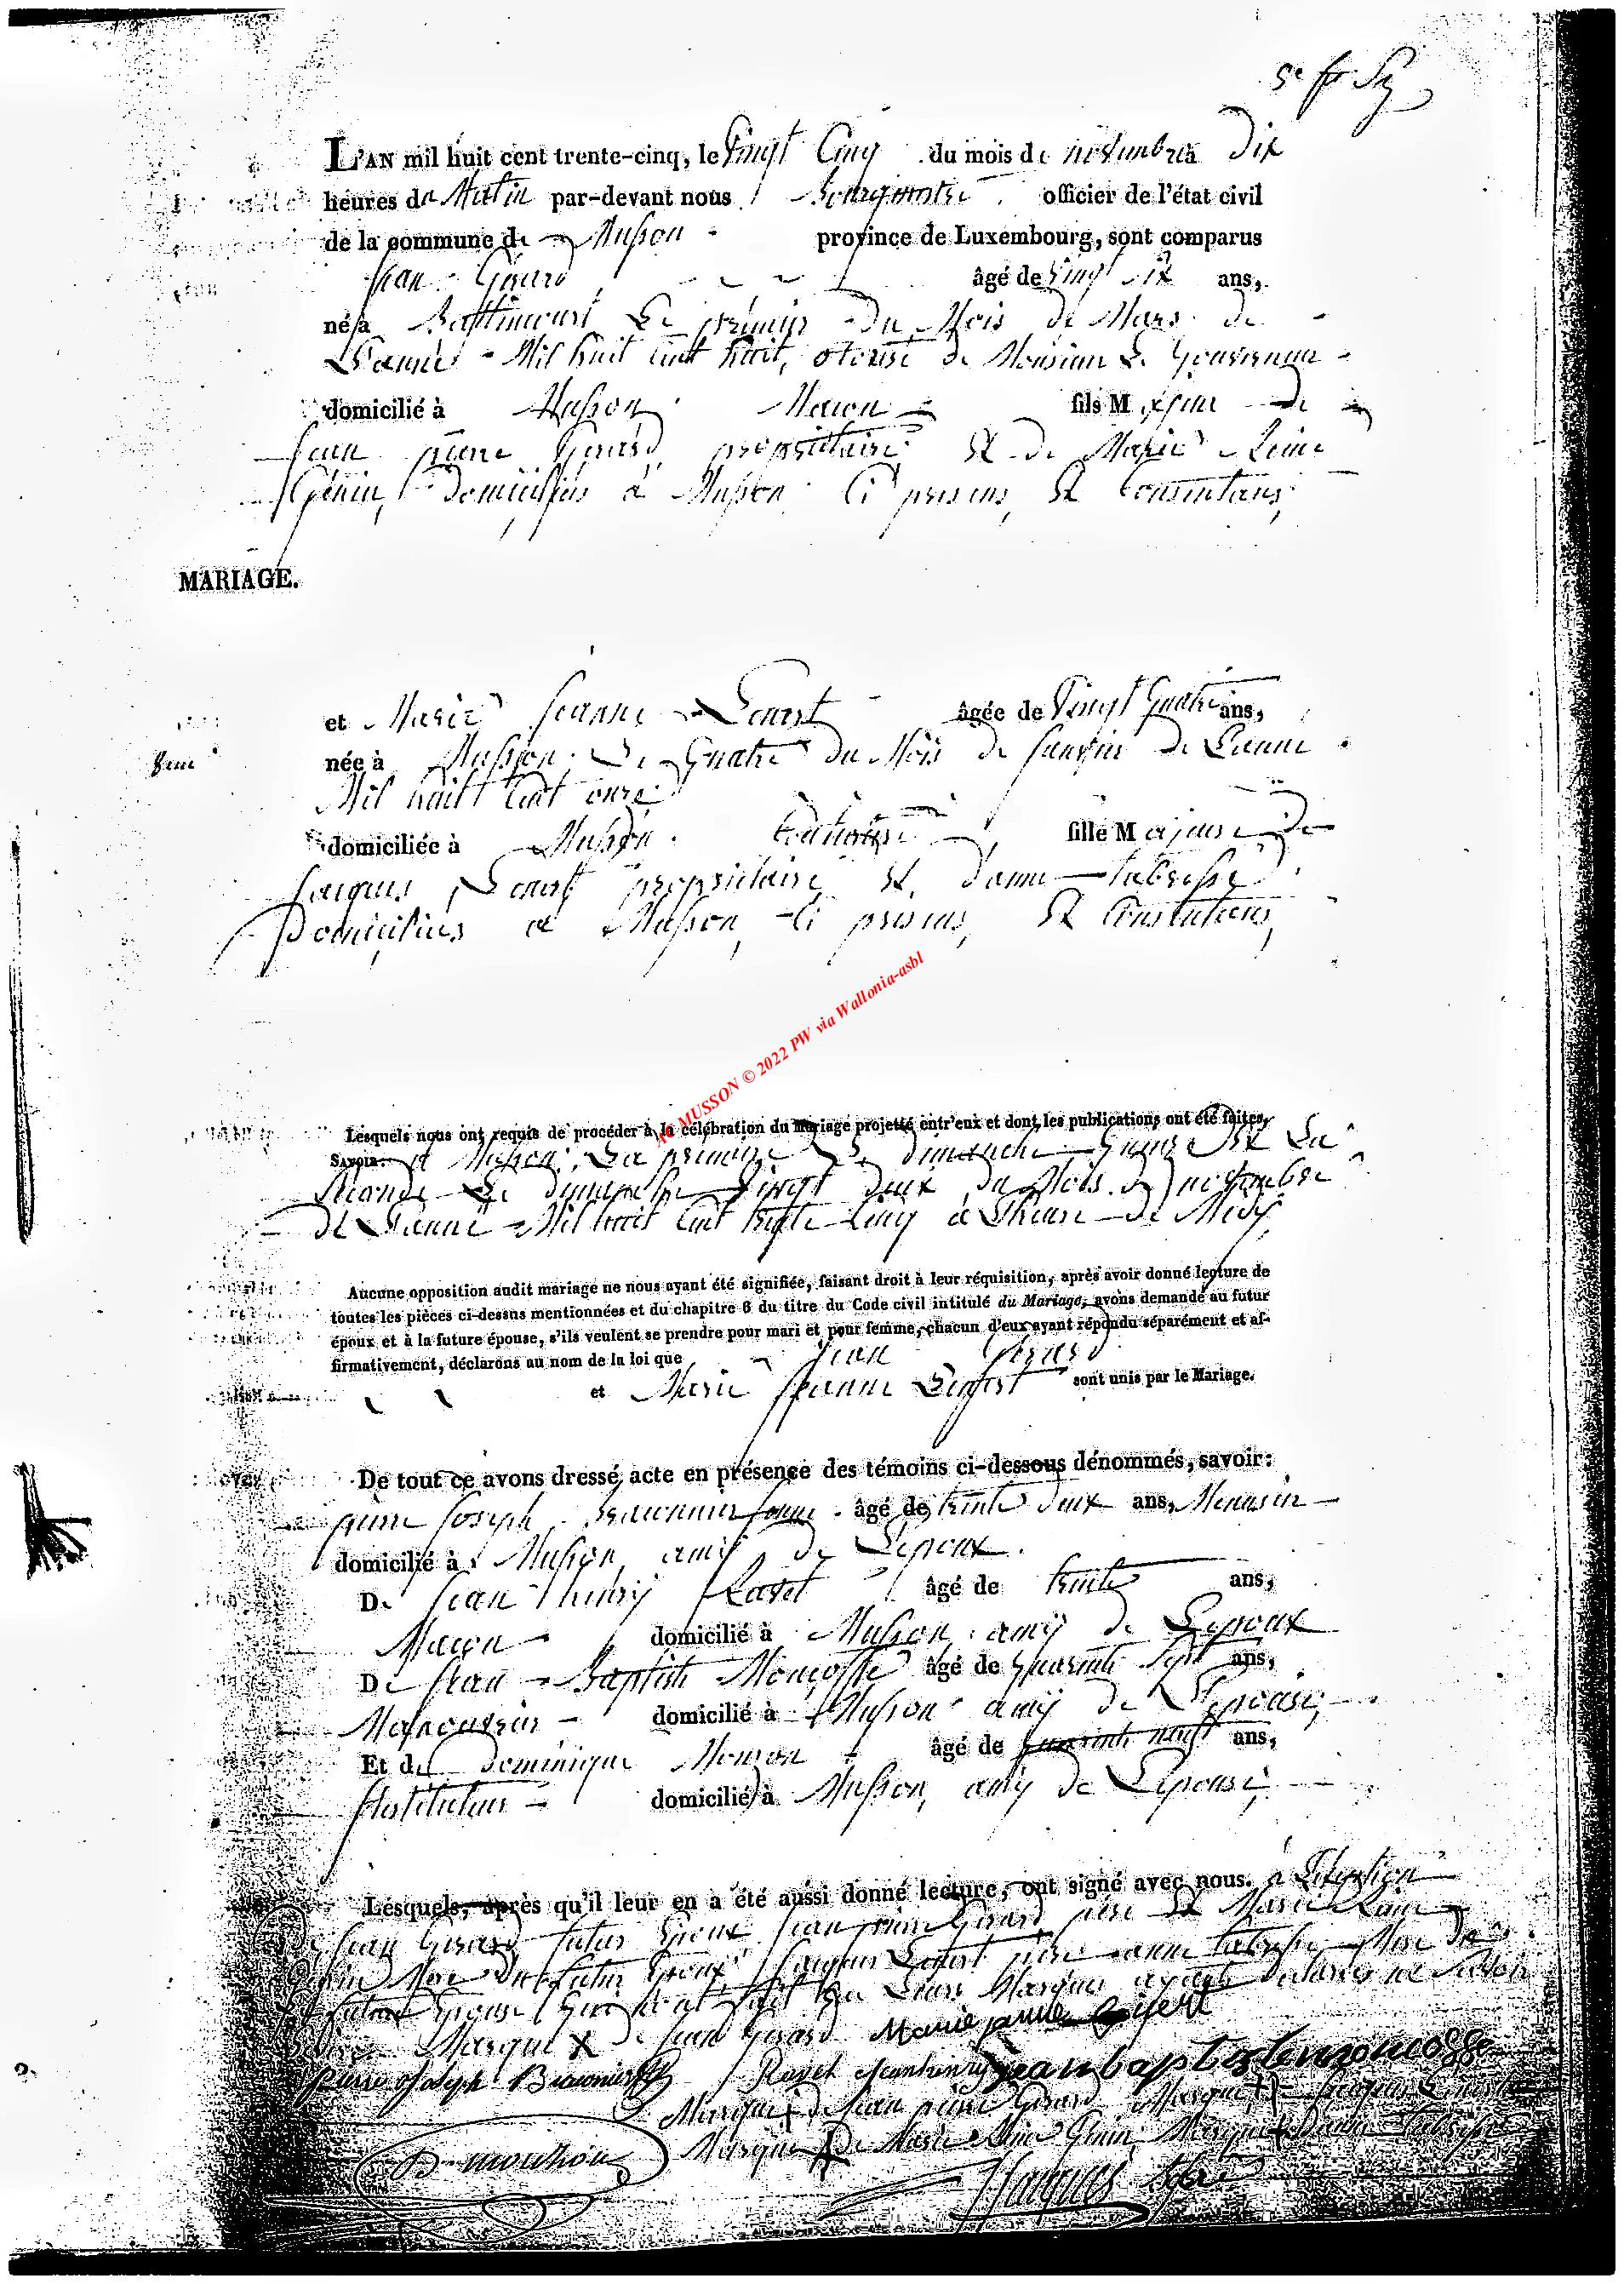 L'AN mil huit cent trente-cinq, le Vingt Cinq du mois de novembre à Dix
heures du Matin par-devant nous Bourgmestre officier de l'état civil
de la commune de Musson province de Luxembourg, sont comparus
Jean Girard âgé de Vingt ans,
né à Battincourt Le premier du Mois de Mars de
L'année Mil huit cent huit, de Monsieur Le Gouverneur
domicilié à Musson Maçon fils Majeur de
Jean pierre Girard propriétaire Et de Marie Reine
Génin, Domiciliés à Musson Ci présens, Et Consentans,
MARIAGE.
et Marie Jeanne âgée de Vingt Quatre ans,
née à Musson Le Quatre du Mois de Janvier de L'année
Mil huit Cent onze
domiciliée à Musson fille Majeure De
Jacques propriétaire Et d'anne
Domiciliés à Musson, Ci présens, Et Consentans,
AC MUSSON © 2022 PW via Wallonia-asbl
Lesquels nous ont requis de procéder à la célébration du Mariage projetté entr'eux et dont les publications ont été faites,
SAVOIR: à Musson, La première Le dimanche Quinze Et La
Seconde Le dimanche Vingt deux du Mois de novembre
de L'année Mil huit Cent trente Cinq à L'heure de Midy,
Aucune opposition audit mariage ne nous ayant été signifiée, faisant droit à leur réquisition, après avoir donné lecture de
toutes les pièces ci-dessus mentionnées et du chapitre 6 du titre du Code civil intitulé du Mariage, avons demandé au futur
époux et à la future épouse, s'ils veulent se prendre pour mari et pour femme, chacun d'eux ayant répondu séparément et af-
firmativement, déclarons au nom de la loi que Jean Girard
et Marie Jeanne sont unis par le Mariage.
De tout ce avons dressé acte en présence des témoins ci-dessous dénommés, savoir:
pierre Joseph âgé de trente deux ans, Menusier
domicilié à Musson, amy de L'epoux.
De Jean thiery Ravet âgé de trente ans,
Maçon domicilié à Musson amÿ de L'epoux
De Jean Baptiste Moncosse âgé de Quarente Sept ans,
Manouvrier domicilié à Musson amÿ de L'epouse,
Et de Dominique âgé de Quarente neuf ans,
Instituteur domicilié à Musson, amÿ de L'epouse,
Lesquels, après qu'il leur en a été aussi donné lecture, ont signé avec nous. à L'exeption
de Jean Girard futur Epoux Jean pierre Girard père Et Marie Reine
Génin Mere Du futur Epoux Jacques père anne Mere De
Epouse Qui ont fait Leurs Marques ayant Declarés ne Savoir
Marque X de Jean Girard Marie jeanne
pierre joseph Ravet jean baptiste moncosse
Marque X de Jean pierre Girard Marque X Jacques
Marque X De Marie Reine Génin Marque X D'anne
D
Jacques